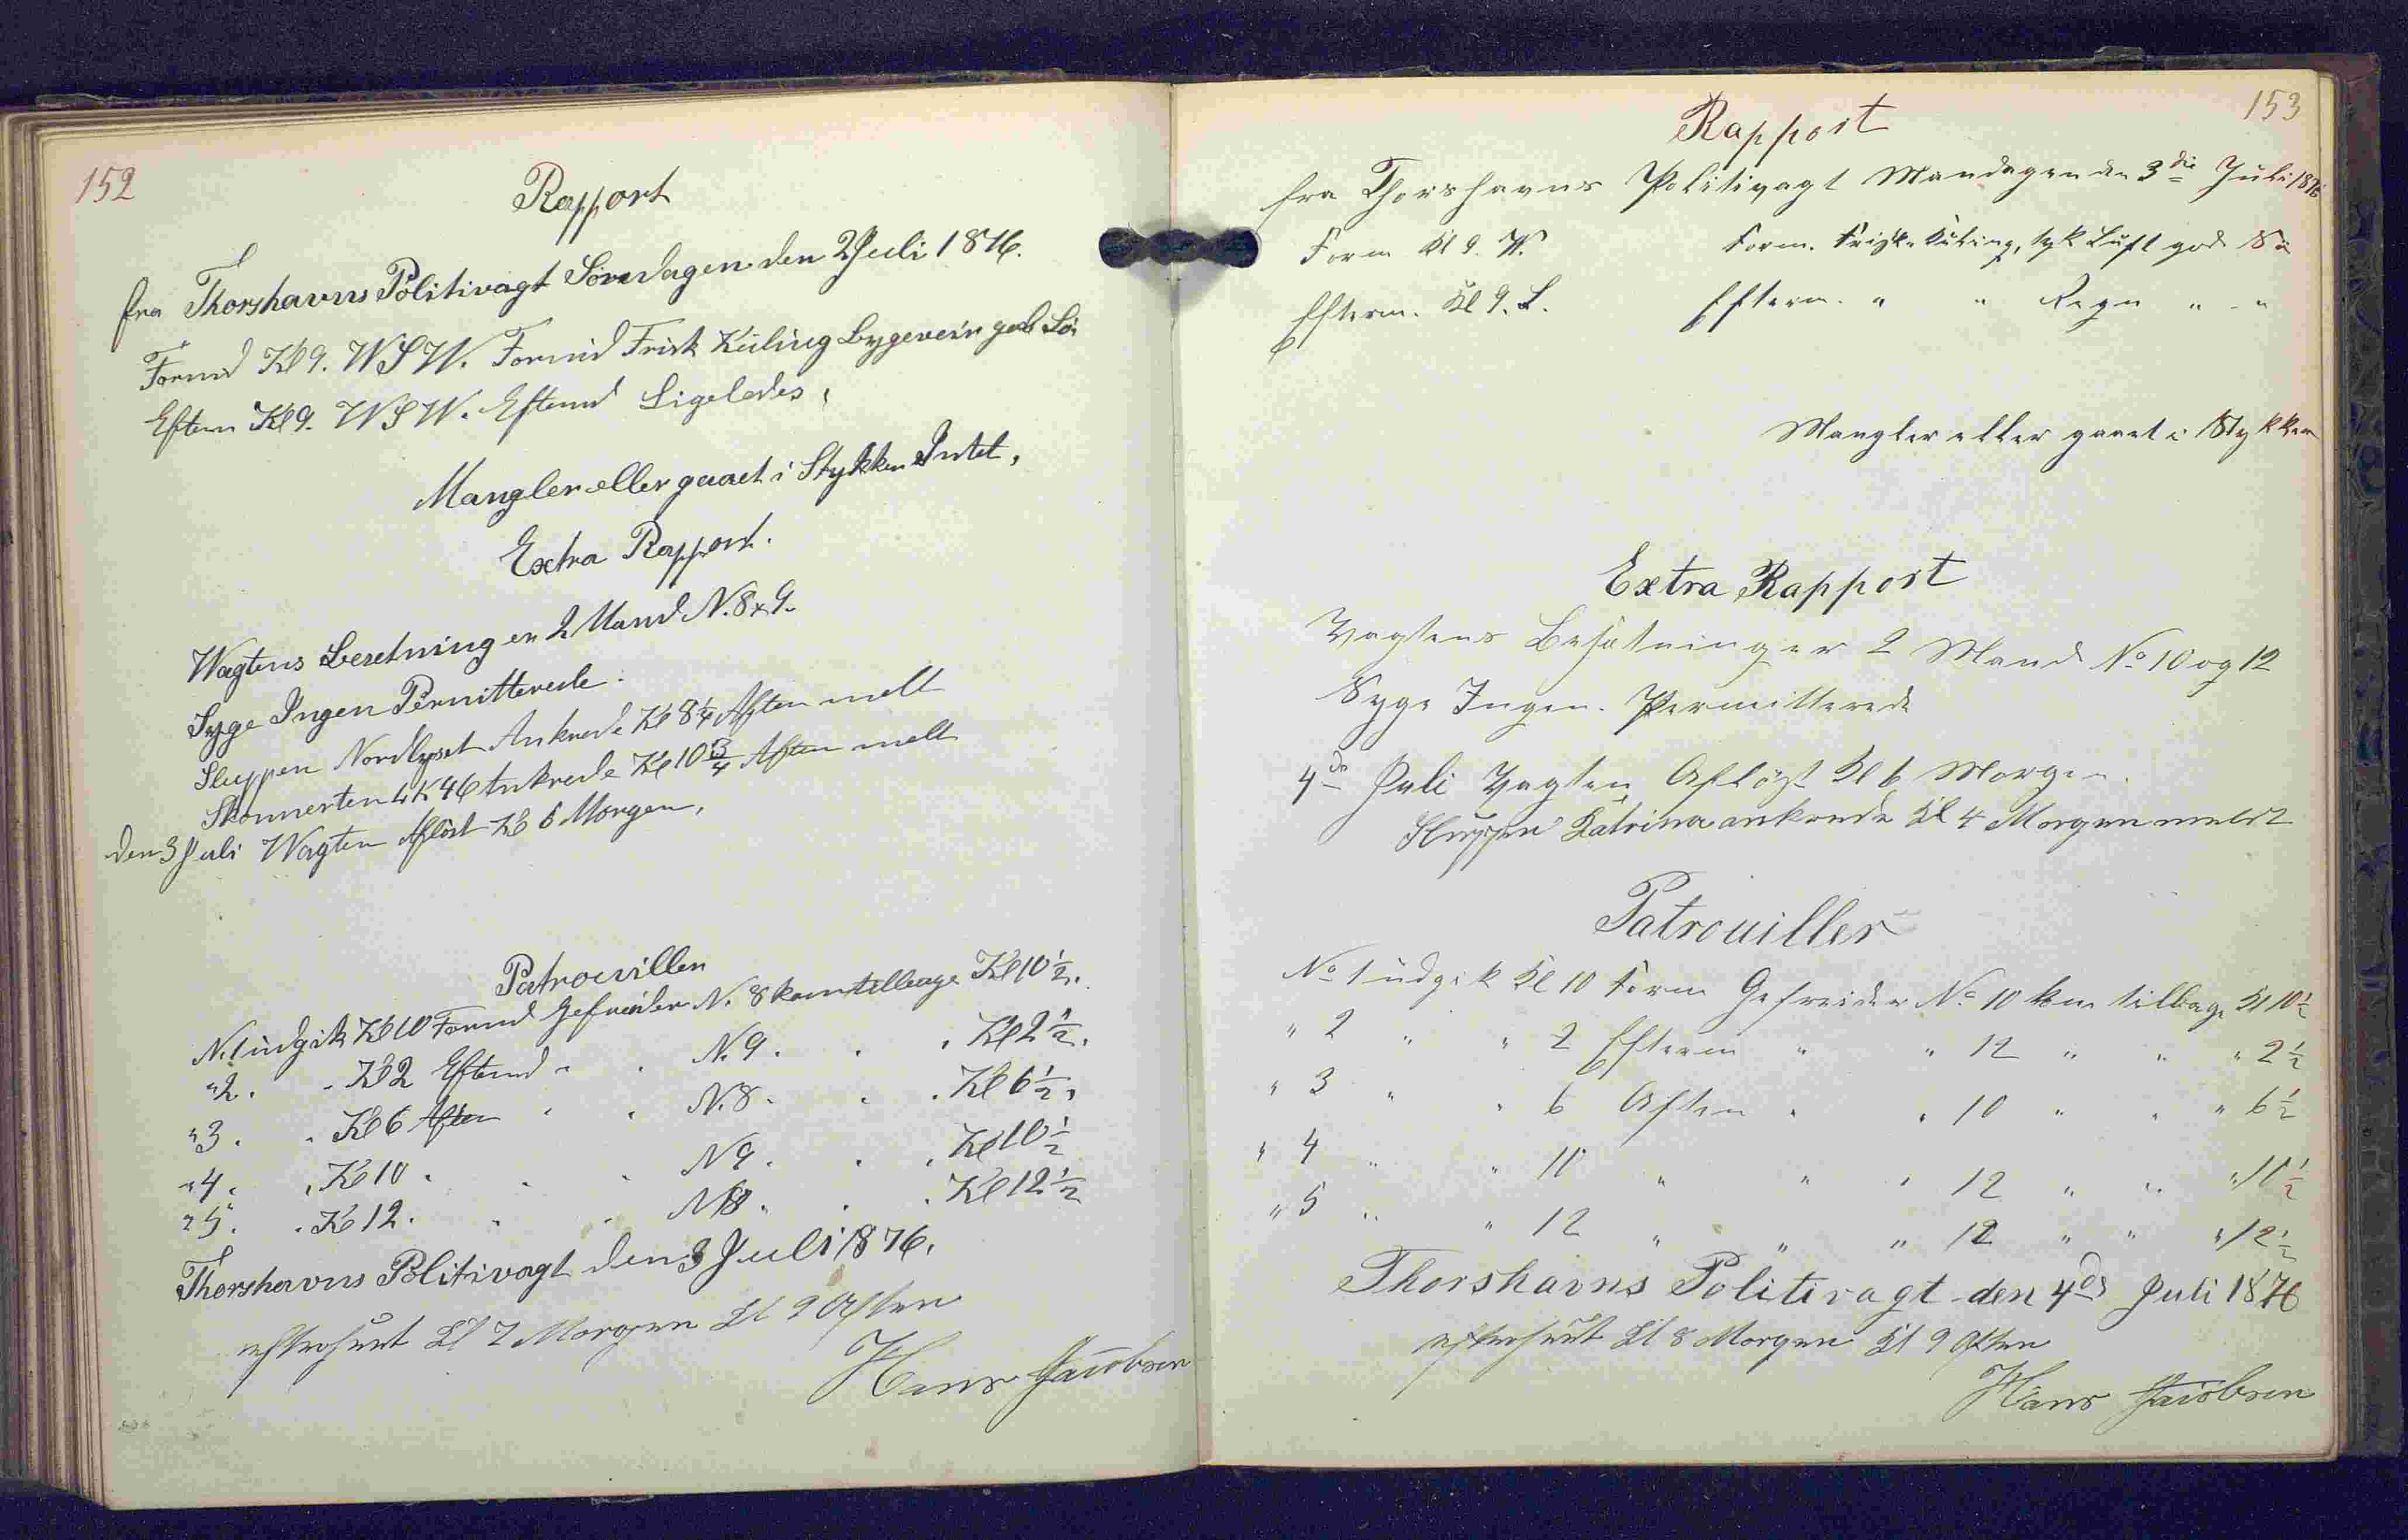 152
Rapport
fra Thorshavns Politivagt Søndagen den 2 Juli 1876.
Formd Kl 9. WSW. Formid Frisk Kuling Bygeveir god Sö
Efterm Kl 9. WSW. Eftermd Ligeledes,
Mangler eller gaaet i Stykker Intet,
Extra Rapport.
Wagtens Besetning er 2 Mand N. 8 & 9.
Syge Ingen Permitterede.
Sluppen Nordlyset Ankrede Kl 8 1/4 Aften melt
Skonnerten LK 46 Ankrede Kl 10 3/4 Aften melt
Den 3 Juli Wagten Aflöst Kl 6 Morgen,
Patrouviller
N. 1 udgik Kl 10 Formd Gefreider N. 8 kom tilbage Kl 10 1/2.
" 2. " Kl 2 Eftermd " . N. 9. . . Kl 2 1/2.
" 3. " Kl 6 Aften " . N. 8. . . Kl 6 1/2,
" 4. " Kl 10 . . . N 9. . . Kl 10 1/2
" 5. . Kl 12. . . N 8. . . Kl 12 1/2
Thorshavns Politivagt den 3 Juli 1876.
efterseet Kl 7 Morgen Kl 9 Aften
Hans Jacobsen
153
Rapport
fra Thorshavns Politivagt Mandagen den 3die Juli 1876
Form Kl 9. W. Form. Friske Kuling, tyk Luft god Sö
Efterm. Kl 9. S. Efterm. " " Regn " "
Mangler eller gaaet i Stykker
Extra Rapport
Vagtens Besætning er 2 Mand No 10 og 12
Syge Ingen. Permitterede
4de Juli Vagten Afløst Kl 6 Morgen.
Sluppen Katrina ankrede Kl 4 Morgen meldt
Patrouiller
No 1 udgik Kl 10 Form Gefreider No 10 kom tilbage Kl 10 1/2
" 2 " " 2 Efterm " " 12 " " " 2 1/2
" 3 " " 6 Aften " " 10 " " " 6 1/2
" 4 " " 10 " " " 12 " " " 10 1/2
" 5 " " 12 " " " 12 " " " 12 1/2
Thorshavns Politivagt den 4de Juli 1876
efterseet Kl 8 Morgen Kl 9 Aften
Hans Jacobsen